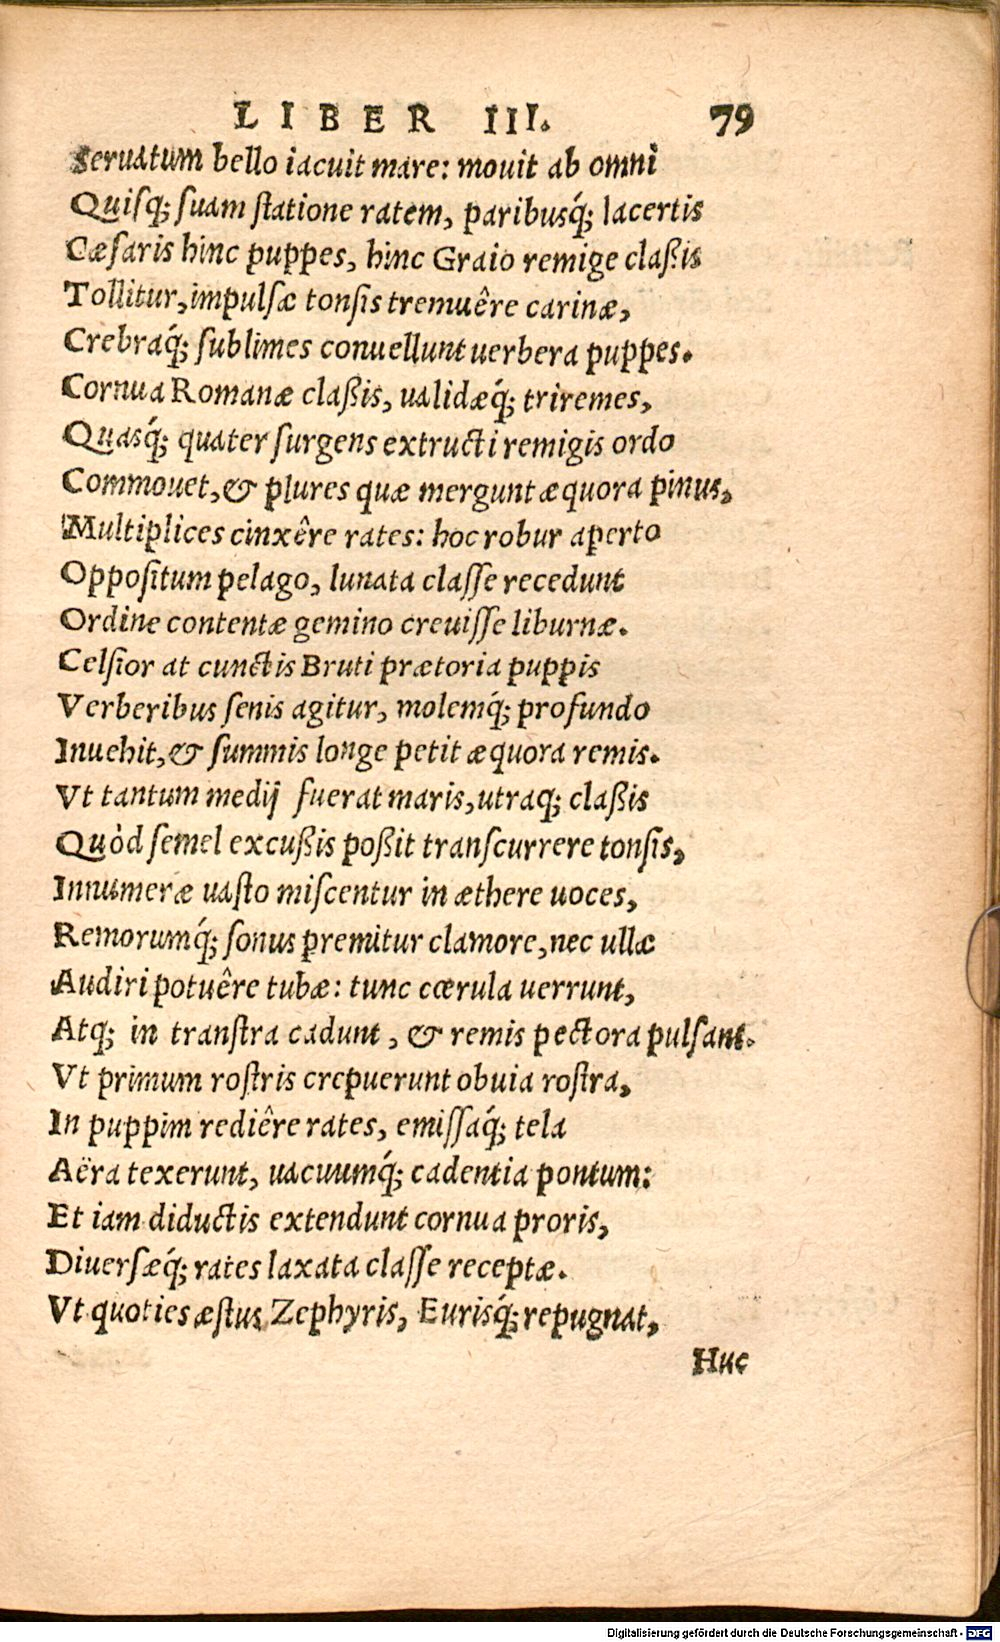 LIBER III. 79
Seruatum bello iacuit mare: mouit ab omni
Quisq; suam statione ratem, paribusq́; lacertis
Cæsaris hinc puppes, hinc Graio remige claßis
Tollitur, impulsæ tonsis tremuêre carinæ,
Crebraq́; sublimes conuellunt uerbera puppes.
Cornua Romanæ claßis, ualidæq́; triremes,
Quasq́; quater surgens extructi remigis ordo
Commouet, & plures quæ mergunt æquora pinus,
Multiplices cinxêre rates: hoc robur aperto
Oppositum pelago, lunata classe recedunt
Ordine contentæ gemino creuisse liburnæ.
Celsior at cunctis Bruti prætoria puppis
Verberibus senis agitur, molemq́; profundo
Inuehit, & summis longe petit æquora remis.
Vt tantum medij fuerat maris, utraq; claßis
Quòd semel excußis poßit transcurrere tonsis,
Innumeræ uasto miscentur in æthere uoces,
Remorumq́; sonus premitur clamore, nec ullæ
Audiri potuêre tubæ: tunc cœrula uerrunt,
Atq; in transtra cadunt, & remis pectora pulsant.
Vt primum rostris crepuerunt obuia rostra,
In puppim rediêre rates, emissaq́; tela
Aëra texerunt, uacuumq́; cadentia pontum:
Et iam diductis extendunt cornua proris,
Diuersæq́; rates laxata classe receptæ.
Vt quoties æstus Zephyris, Eurisq́; repugnat,
Huc
Digitalisierung gefördert durch die Deutsche Forschungsgemeinschaft - DFG